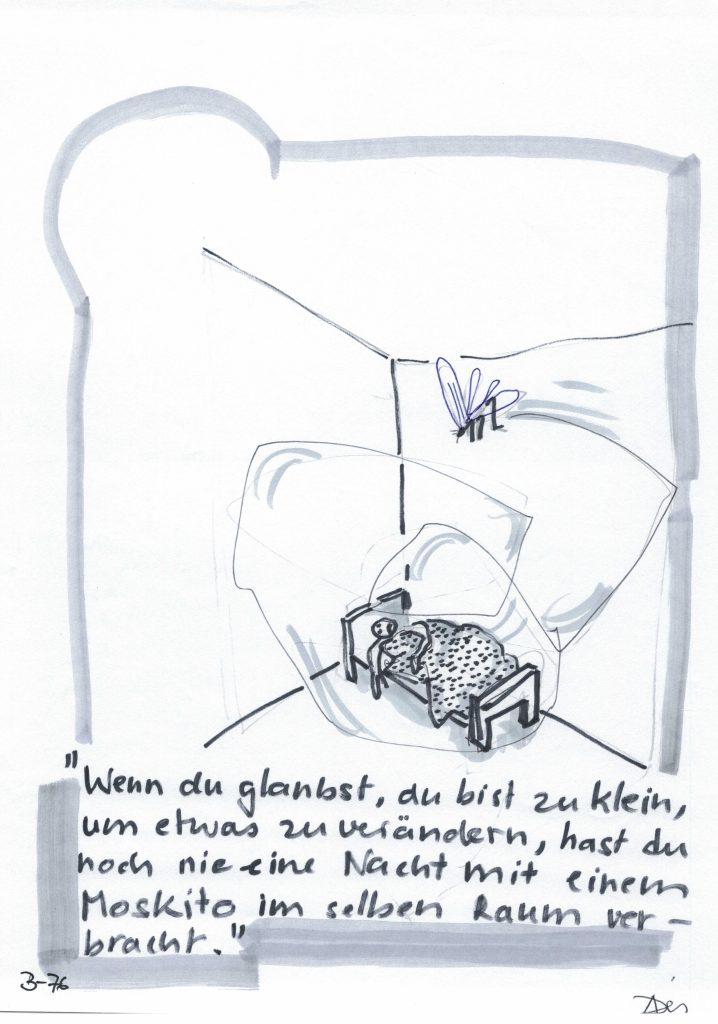 "Wenn du glaubst, du bist zu klein,
um etwas zu verändern, hast du
noch nie eine Nacht mit einem
Moskito im selben Raum ver-
bracht."
B-76